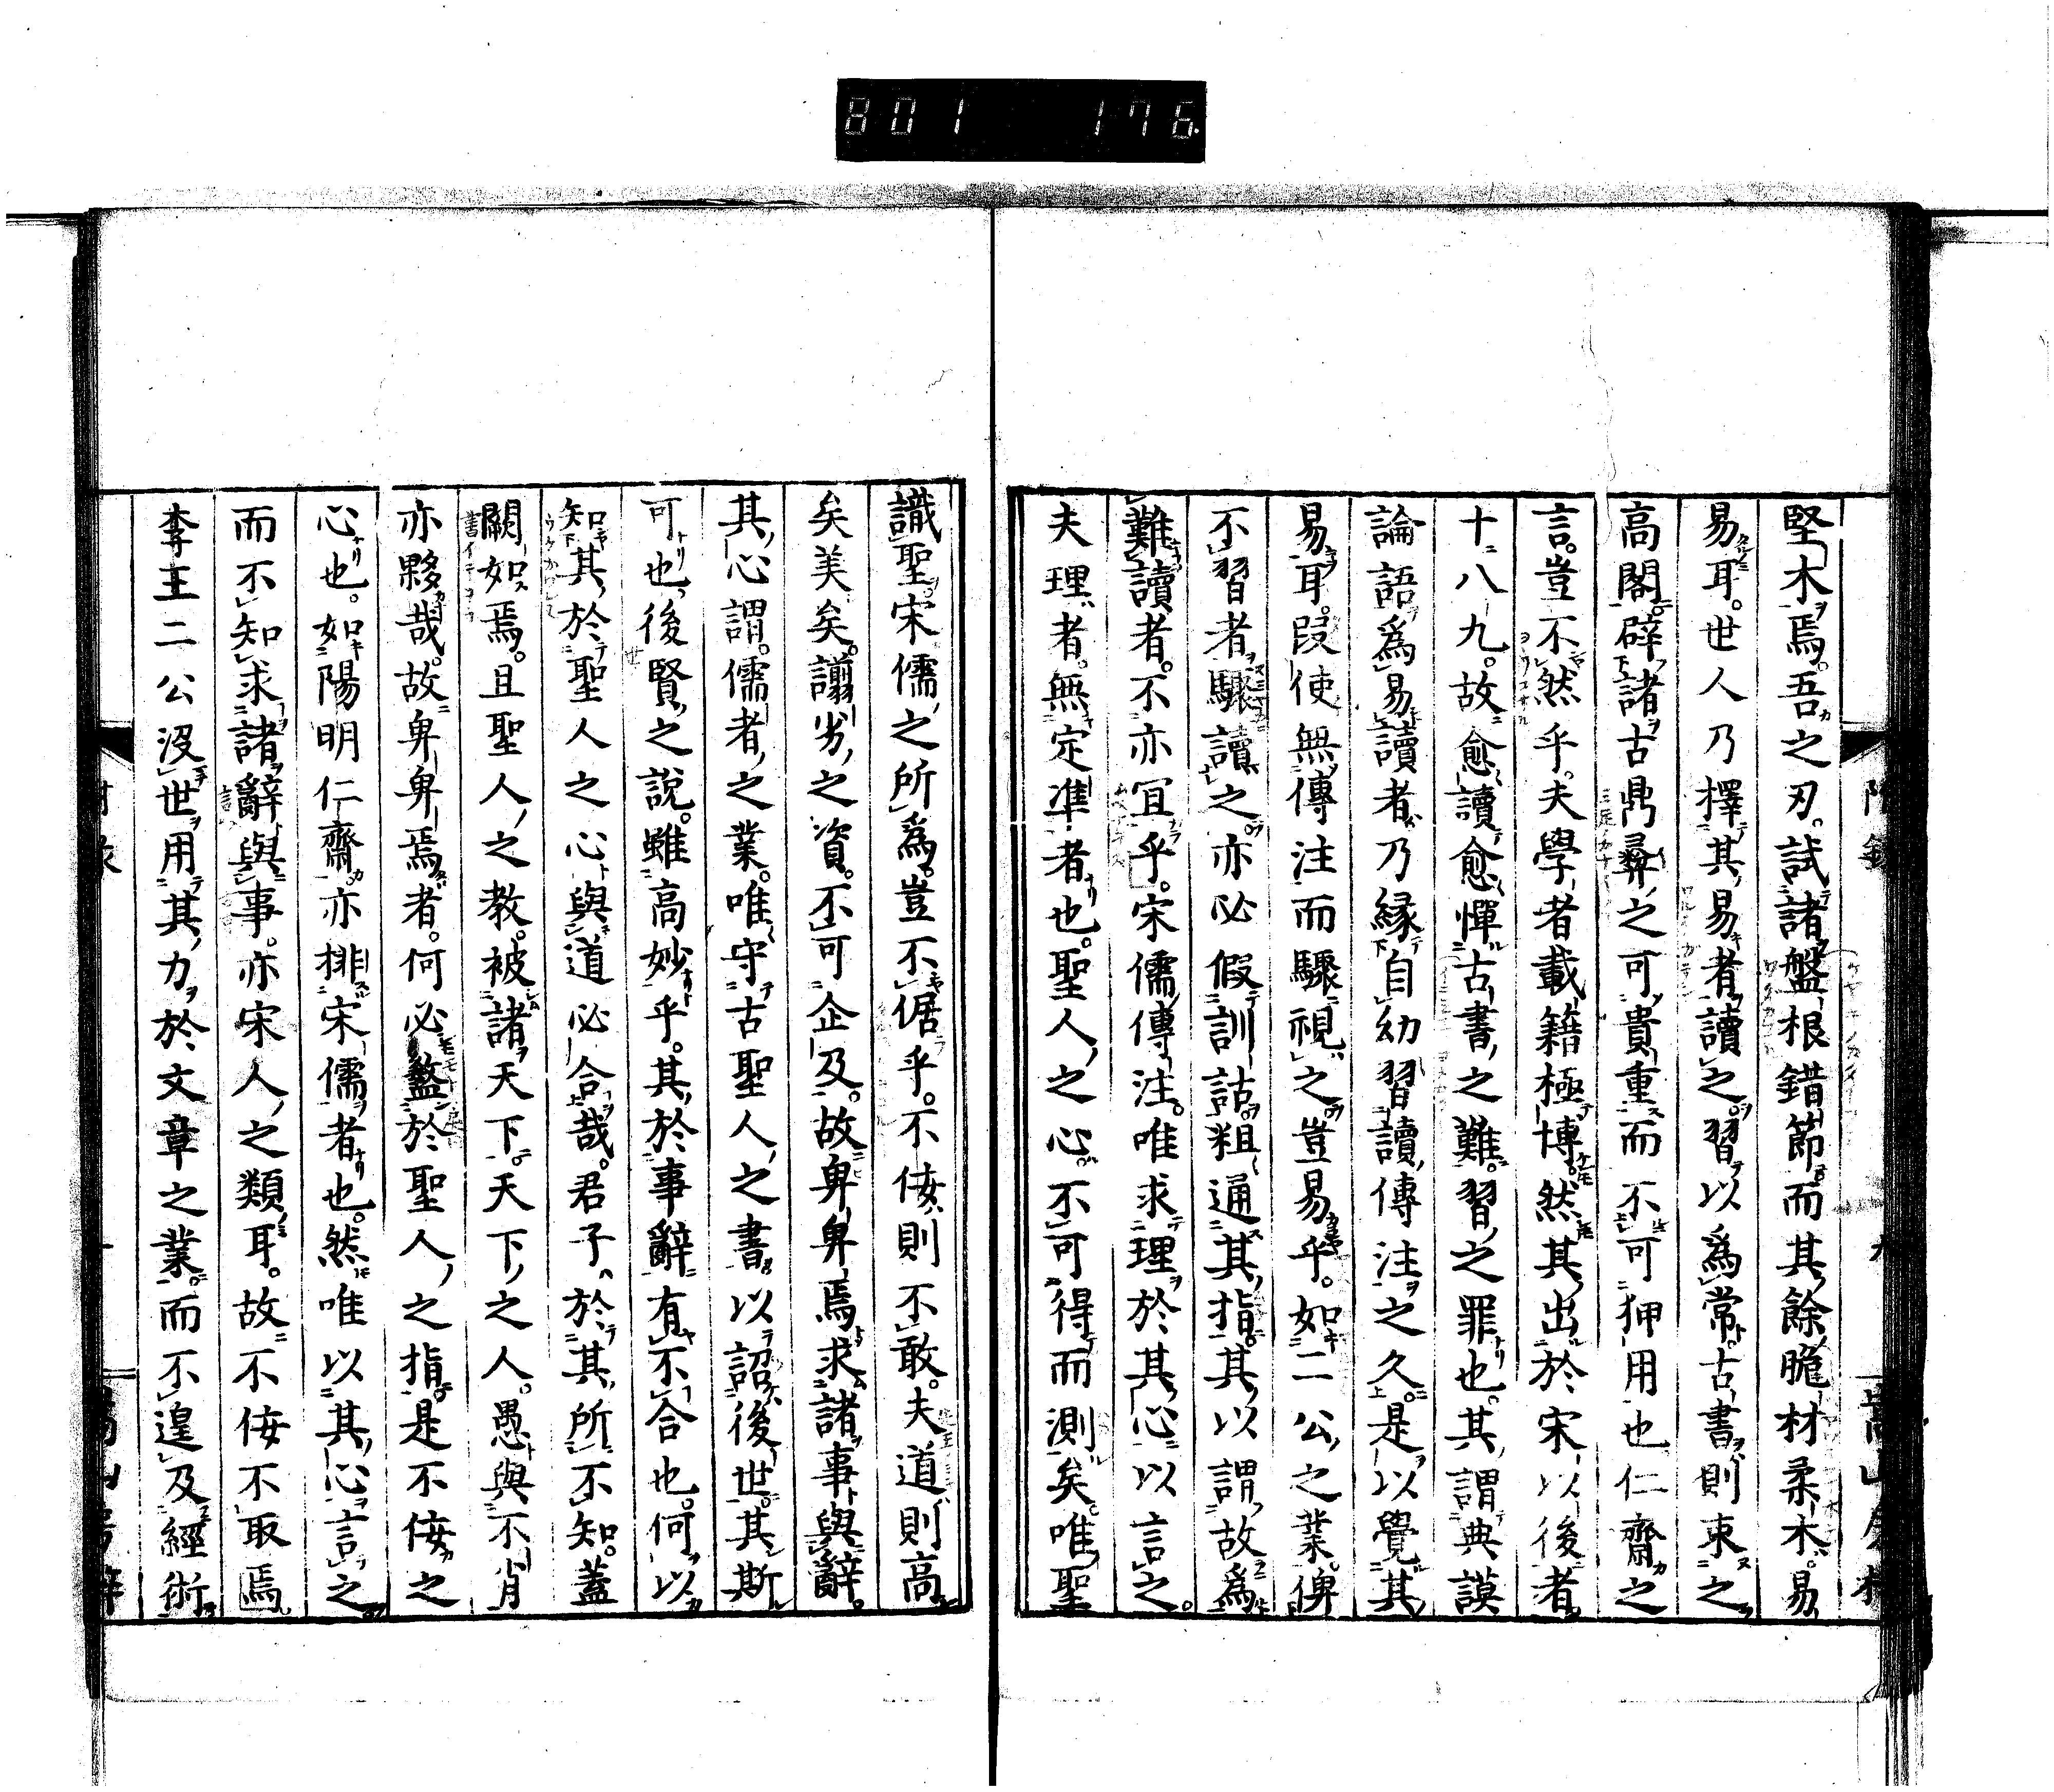 801 176
堅木焉。吾之刃。試諸盤根錯節。而其餘脆材柔木。易
易耳。世人乃擇其易者讀之。習以爲常。古書則束之
高閣。辟諸古鼎彝之可貴重而不可狎用也仁齋之
言。豈不然乎。夫學者載籍極博。然其出於宋以後者
十八九。故愈讀愈憚古書之難。習之罪也。其謂典謨
論語爲易讀者。乃緣自幼習讀傳注之久。是以覺其
易耳。段使無傳注而驟視之。豈易乎。如二公之業。俾
不習者驟讀之。亦必假訓詁。粗通其指。其以謂故爲
難讀者。不亦宜乎。宋儒傳注。唯求理於其心以言之。
夫理者。無定準者也。聖人之心。不可得而測矣。唯聖
識聖宋儒之所爲。豈不倨乎。不佞則不敢。夫道則高
矣美矣。謭劣之資。不可企及。故卑卑焉求諸事與辭。
其心謂。儒者之業。唯守古聖人之書。以詔後世。其斯
可也。後賢之說。雖高妙乎。其於事辭有不合也。何以
知其於聖人之心與道必合哉。君子於其所不知。蓋
闕如焉。且聖人之教。被諸天下。天下之人。愚與不肖
亦夥哉。故卑卑焉者。何必盭於聖人之指。是不佞之
心也。如陽明仁齋。亦排宋儒者也。然唯以其心言之
而不知求諸辭與事。亦宋人之類耳。故不佞不取焉
李王二公沒世用其力於文章之業。而不遑及經術。